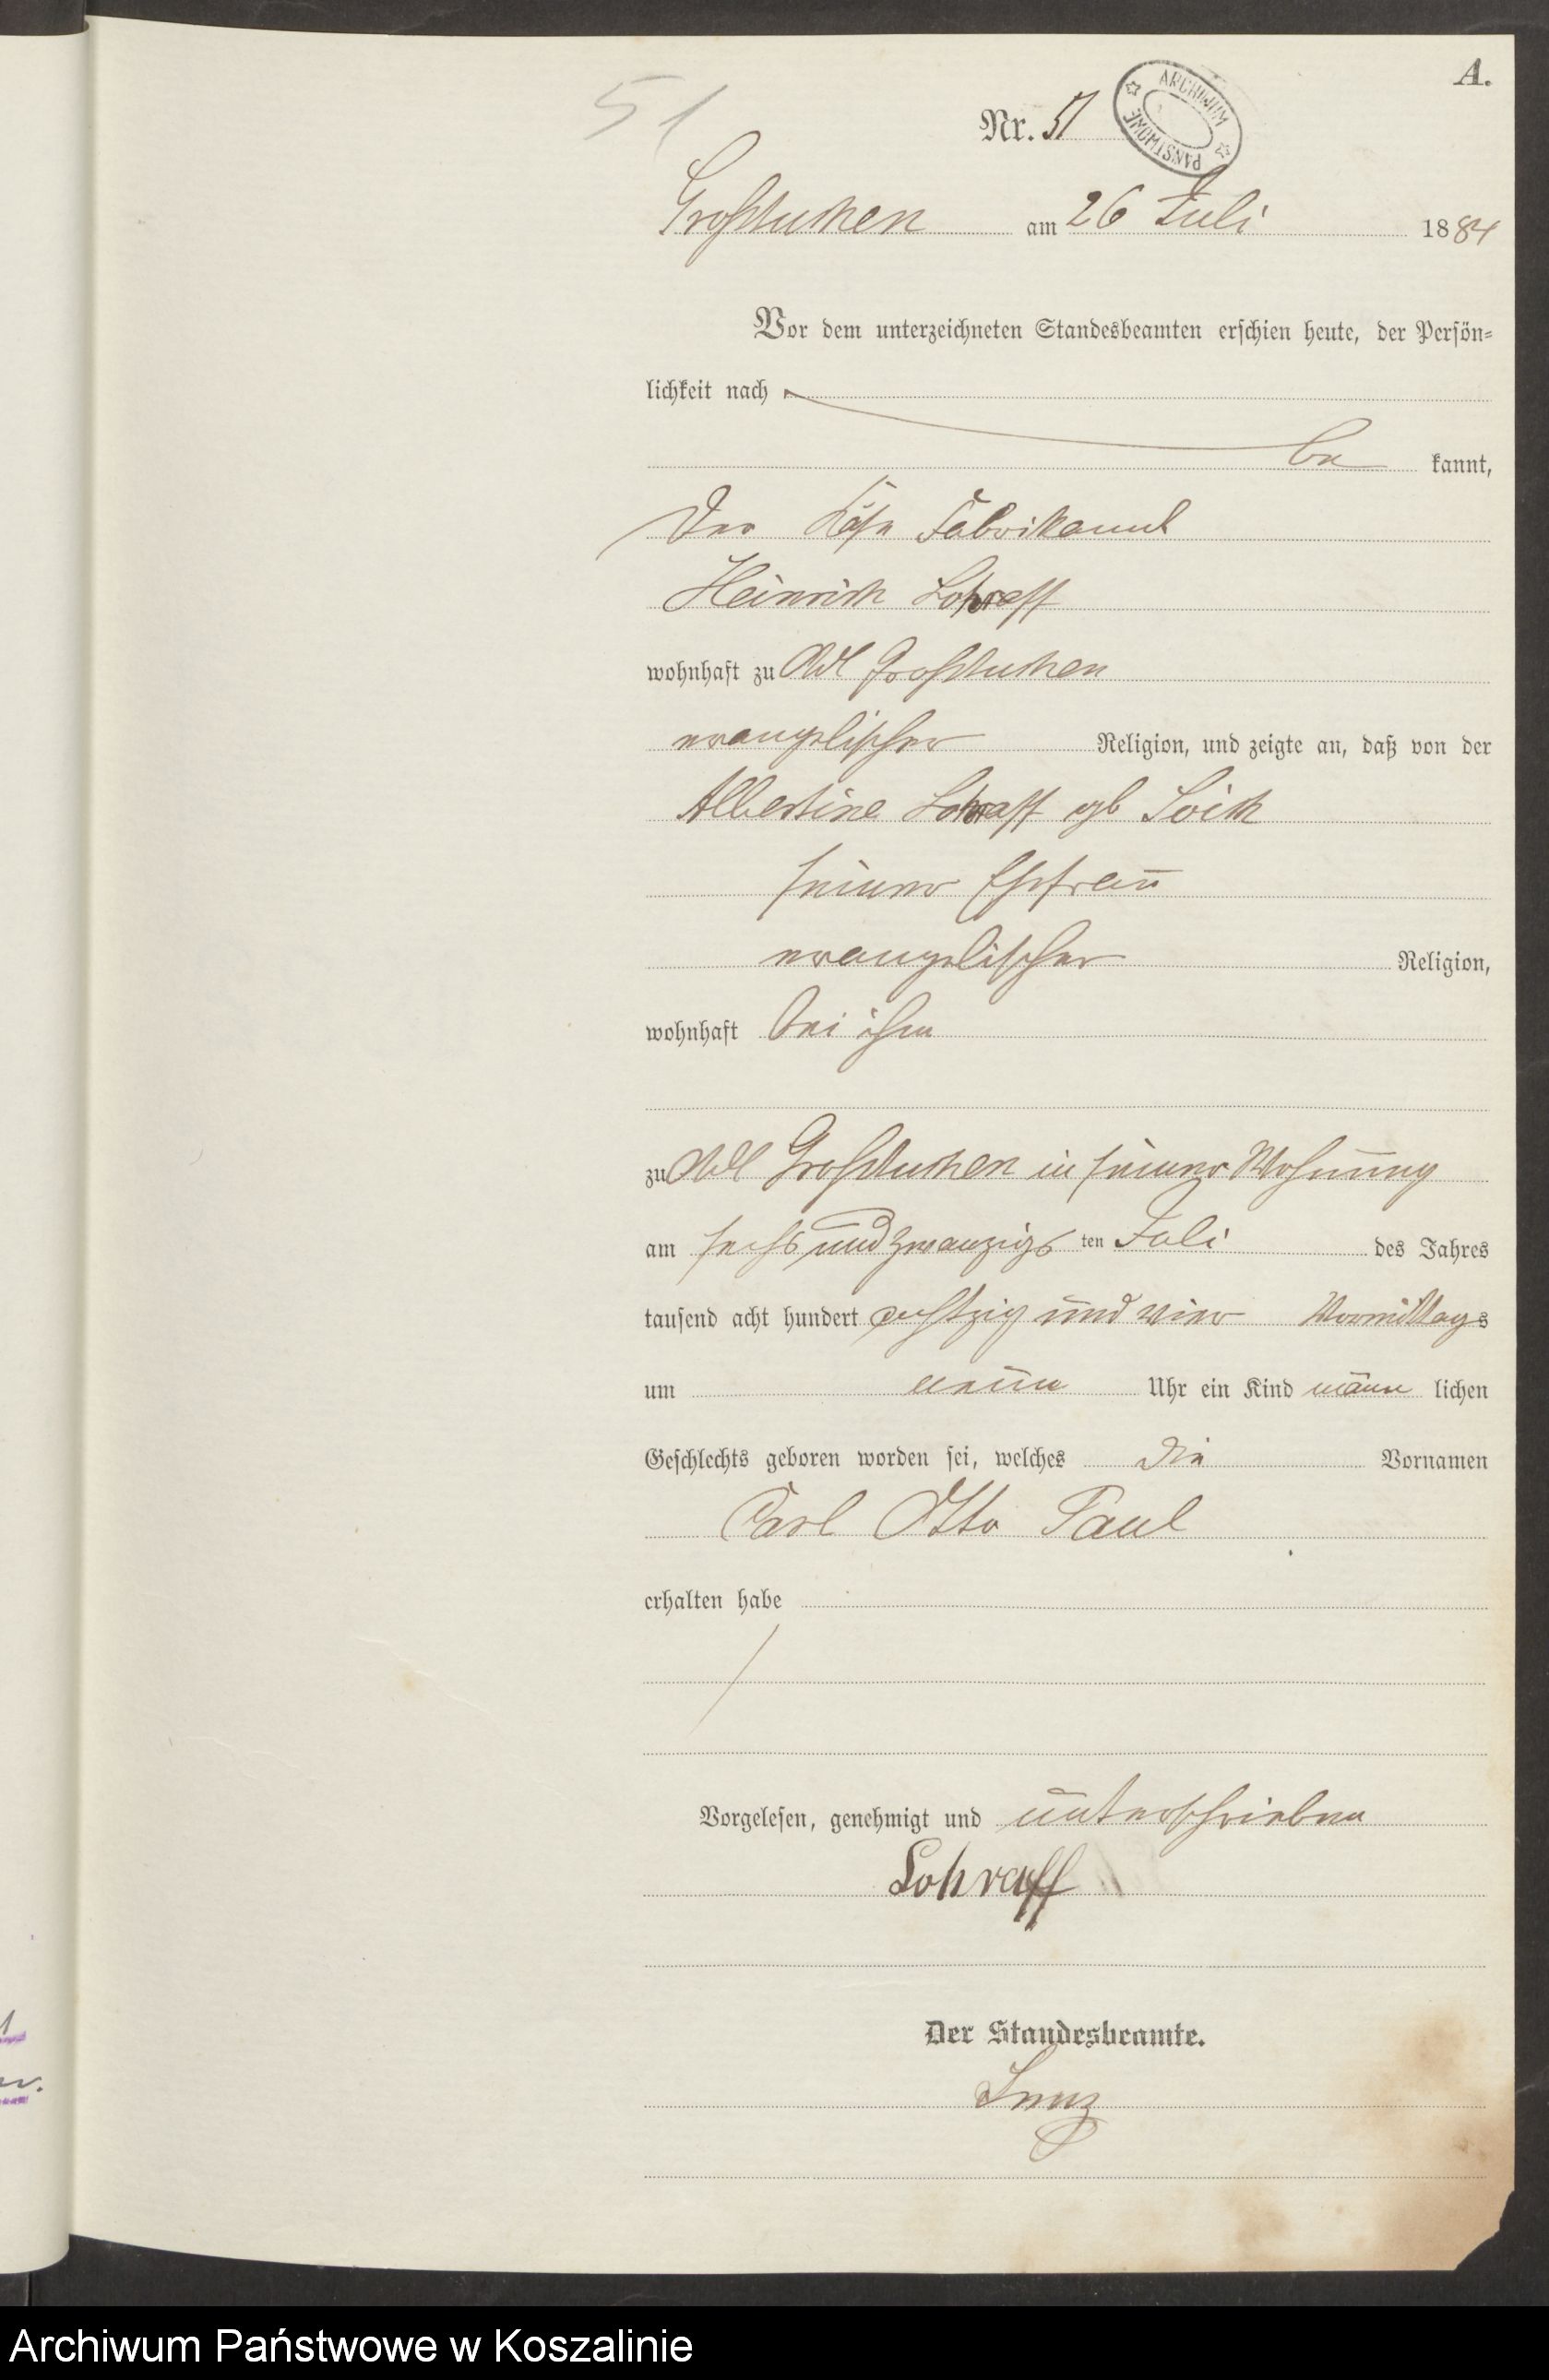 A.
51
Nr. 51
ARCHIWUM PAŃSTWOWE
Großtuchen am 26 Juli 1884
Vor dem unterzeichneten Standesbeamten erschien heute, der Persön=
lichkeit nach
be kannt,
Der Käse Fabrikannt
Heinrich Lohraff
wohnhaft zu Adl Großtuchen
evangelischer Religion, und zeigte an, daß von der
Albertine Lohraff geb
seiner Ehefrau
evangelischer Religion,
wohnhaft bei ihm
zu Adl Großtuchen in seiner Wohnung
am sechs und zwanzigs ten Juli des Jahres
tausend acht hundert achtzig und vier Vormittags
um neun Uhr ein Kind männ lichen
Geschlechts geboren worden sei, welches die Vornamen
Carl Otto Paul
erhalten habe
Vorgelesen, genehmigt und unterschrieben
Lohraff
Der Standesbeamte.
Lenz
Archiwum Państwowe w Koszalinie